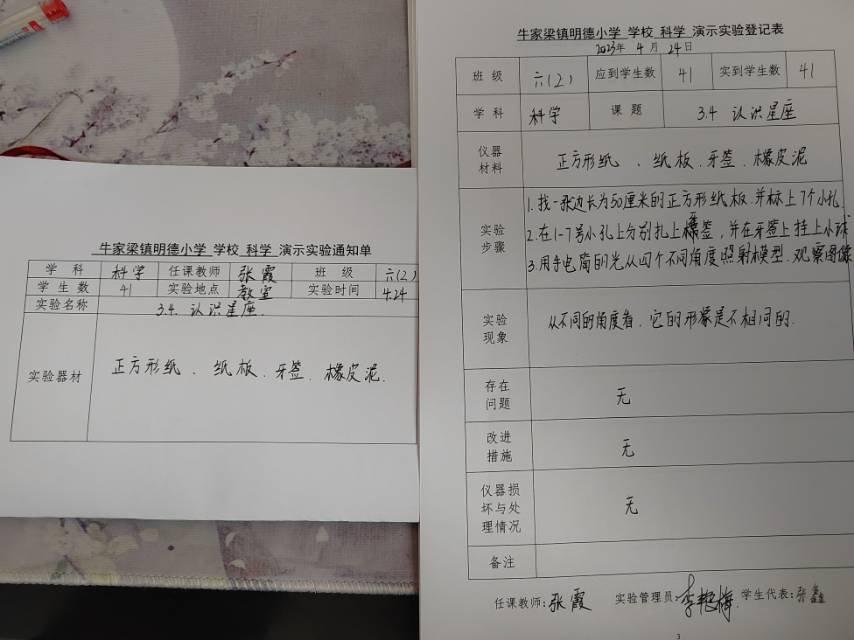 牛家梁镇明德小学 学校 科学 演示实验通知单
学 科 科学 任课教师 张霞 班 级 六(2)
学 生 数 41 实验地点 教室 实验时间 4.24
实验名称 3.4. 认识星座.
实验器材 正方形纸 、纸板、牙签、橡皮泥.
牛家梁镇明德小学 学校 科学 演示实验登记表
2023年 4 月 24日
班 级 六(2) 应到学生数 41 实到学生数 41
学 科 科学 课 题 3.4 认识星座
仪器材料 正方形纸 、纸板、牙签、橡皮泥
实验步骤 1.找一张边长为50厘米的正方形纸板.并标上7个小孔.
2.在1-7号小孔上分别扎上牙签,并在牙签上挂上小球
3.用手电筒的光从四个不同角度照射模型.观察图像
实验现象 从不同的角度看,它的形象是不相同的.
存在问题 无
改进措施 无
仪器损坏与处理情况 无
备注
任课教师:张霞 实验管理员:李艳梅 学生代表:张鑫
3